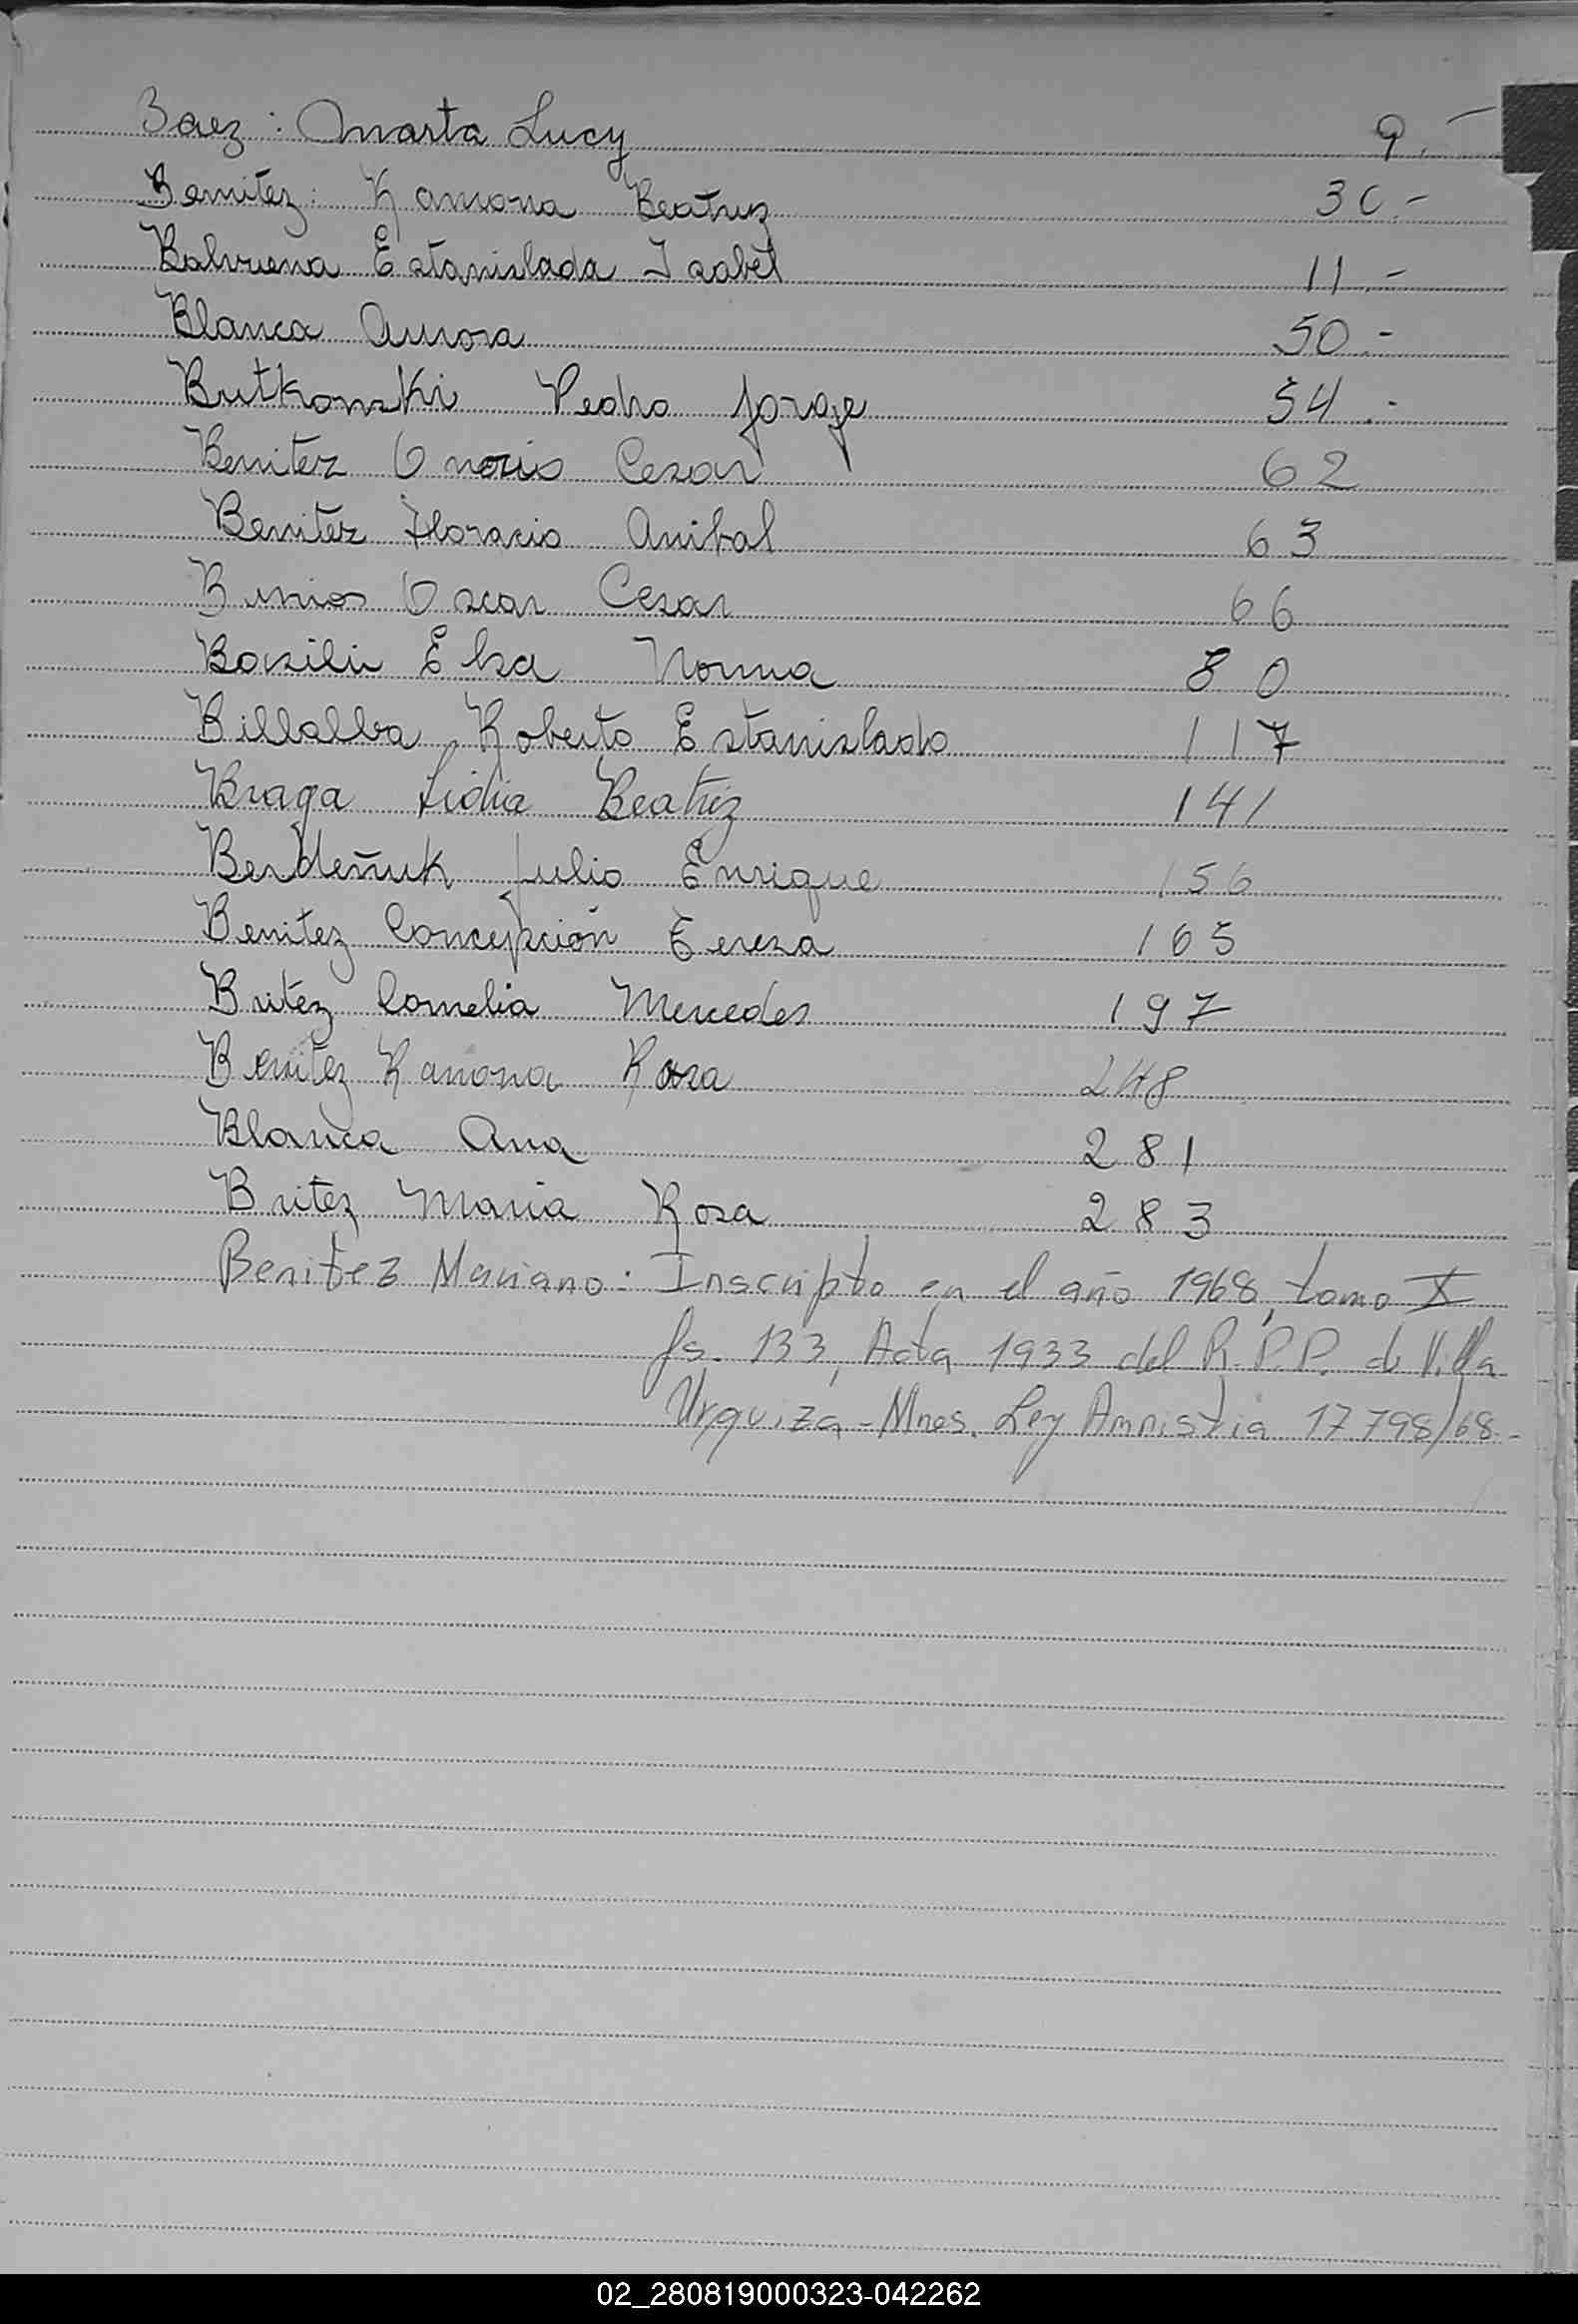 Baez: Marta Lucy 9.-
Benitez: Ramona Beatriz 30.-
Balvuena Estanislada Isabel 11.-
Blanca Aurora 50.-
Butkowski Pedro Jorge 54.-
Benitez Cesar 62
Benitez Horacio Anibal 63
Oscar Cesar 66
Basili Elsa Norma 80
Billalba Roberto Estanislado 117
Braga Lidia Beatriz 141
Berdeñuk Julio Enrique 156
Benitez Concepción Tereza 165
Britez Cornelia Mercedes 197
Benitez Ramona Rosa 248
Blanca Ana 281
Britez Maria Rosa 283
Benitez Mariano: Inscripto en el año 1968, tomo X
fs. 133, Acta 1933 del R.P.P. de Villa
Urquiza - Mnes. Ley Amnistia 17798/68.-
02_280819000323-042262